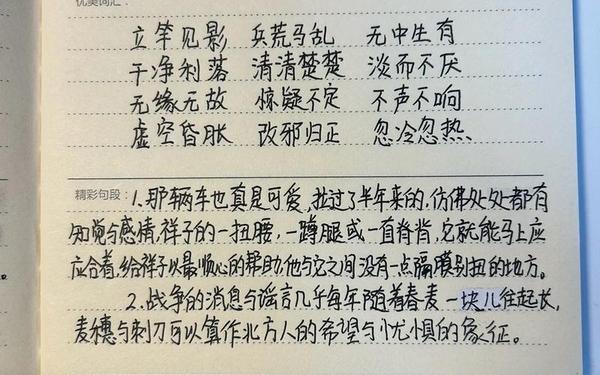 优美词汇:
立竿见影 兵荒马乱 无中生有
干净利落 清清楚楚 淡而不厌
无缘无故 惊疑不定 不声不响
虚空昏胀 改邪归正 忽冷忽热
精彩句段: 1、那辆车也真是可爱,拉过了半年来的,仿佛处处都有
知觉与感情,祥子的一扭腰,一蹲腿或一直脊背,它就能马上应
应合着,给祥子以最顺心的帮助,他与它之间没有一点隔膜别扭的地方。
2、战争的消息与谣言几乎每年随着春麦一块儿往起长,
麦穗与刺刀可以算作北方人的希望与忧惧的象征。